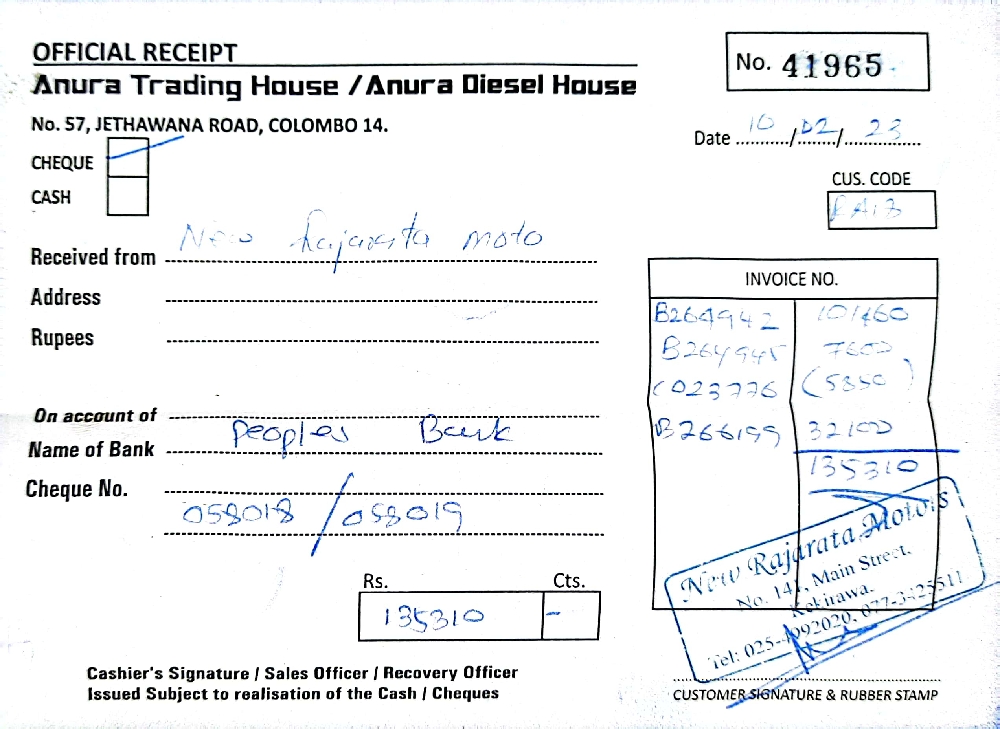 OFFICIAL RECEIPT
Anura Trading House / Anura Diesel House
No. 57, JETHAWANA ROAD, COLOMBO 14.
No. 41965
Date 10/02/23
CHEQUE
CASH
CUS. CODE
Received from New Rajarata Moto
Address
Rupees
INVOICE NO.
B264942 101460
B264945 7600
C023776 (5850)
B266199 32100
135310
On account of
Name of Bank Peoples Bank
Cheque No.
058018 / 058019
Rs. Cts.
135310 -
New Rajarata Motors
No. 141, Main Street,
Kekirawa.
Tel: 025-4992020, 077-3425511
Cashier's Signature / Sales Officer / Recovery Officer
Issued Subject to realisation of the Cash / Cheques
CUSTOMER SIGNATURE & RUBBER STAMP